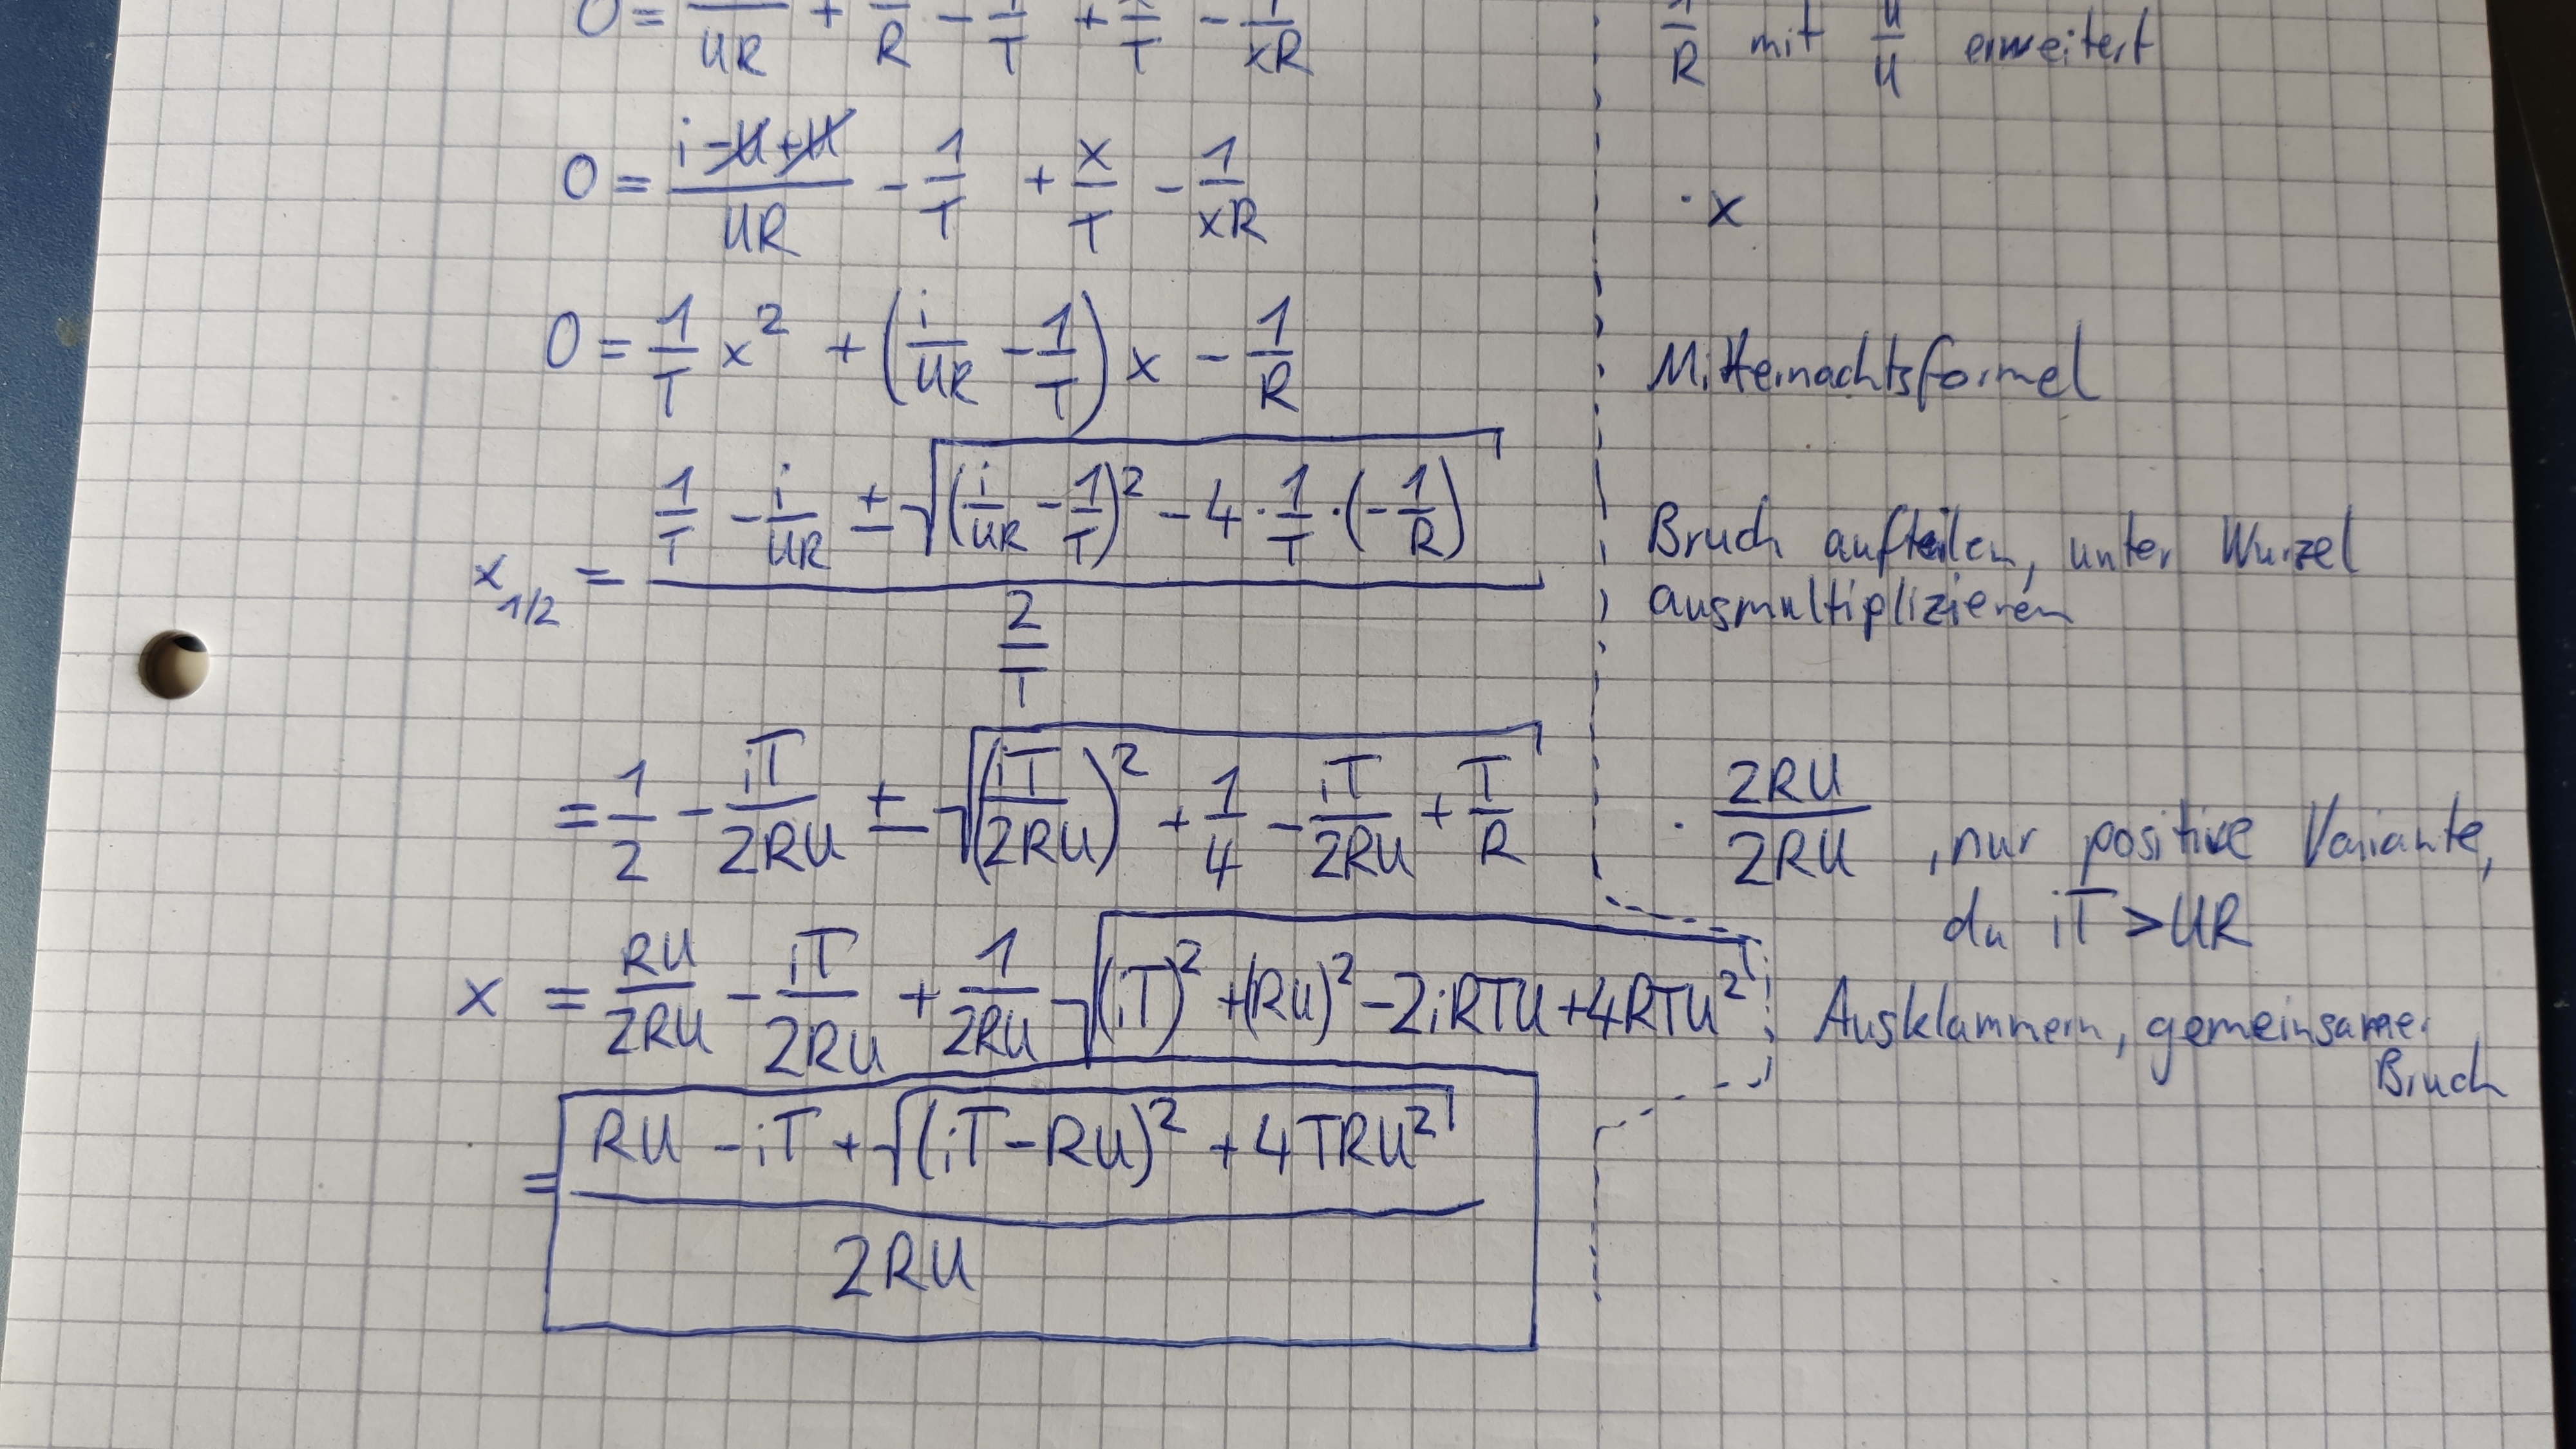 0 = /UR + /R - 1/T + x/T - 1/xR
1/R mit U/U erweitert
0 = (i - U + U)/UR - 1/T + x/T - 1/xR
· x
0 = 1/T x² + (i/UR - 1/T) x - 1/R
Mitternachtsformel
x_1/2 = (1/T - i/UR ± √((i/UR - 1/T)² - 4 · 1/T · (-1/R)))/(2/T)
Bruch aufteilen, unter Wurzel
ausmultiplizieren
= 1/2 - iT/2RU ± √((iT/2RU)² + 1/4 - iT/2RU + T/R)
· 2RU/2RU , nur positive Variante,
da iT > UR
x = RU/2RU - iT/2RU + 1/2RU √((iT)² + (RU)² - 2iRTU + 4RTU²)
Ausklammern, gemeinsamer
Bruch
= (RU - iT + √((iT - RU)² + 4TRU²))/2RU